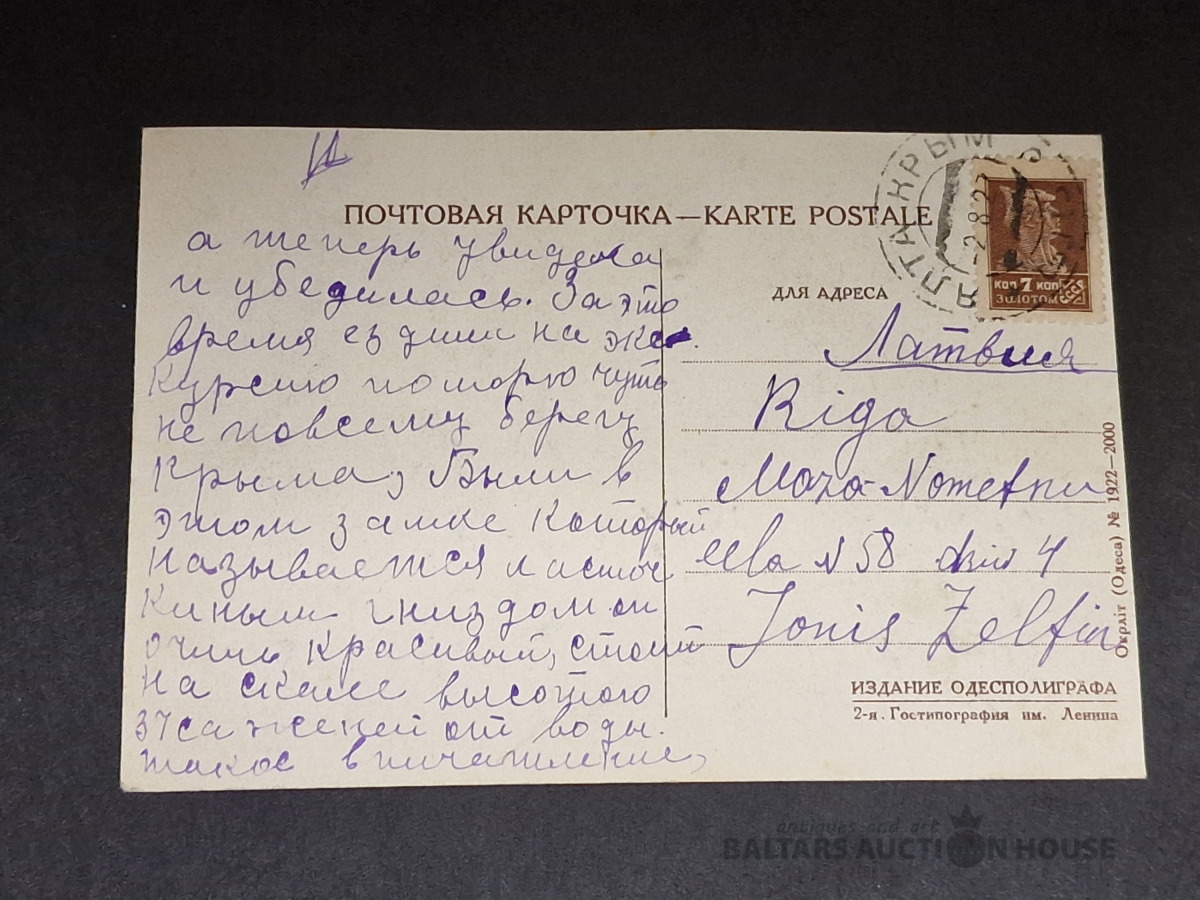 ПОЧТОВАЯ КАРТОЧКА — KARTE POSTALE
а теперь увидела
и убедилась. За это
время ездили на экс-
курсию по морю чуть
не повсему берегу
Крыма, были в
этом замке который
называется ласточ
киным гниздом он
очинь красивый, стоит
на скале высотою
37 саженей от воды.
такое впичатление,
ЯЛТА КРЫМ
2.8.27
КОП 7 КОП
ЗОЛОТОМ
СССР
ДЛЯ АДРЕСА
Латвия
Riga
Maza-Nometnu
iela N 58 dziv 4
Jonis Zelfin
Окрліт (Одеса) № 1922—2000
ИЗДАНИЕ ОДЕСПОЛИГРАФА
2-я. Гостипография им. Ленина
antiques and art
BALTARS AUCTION HOUSE